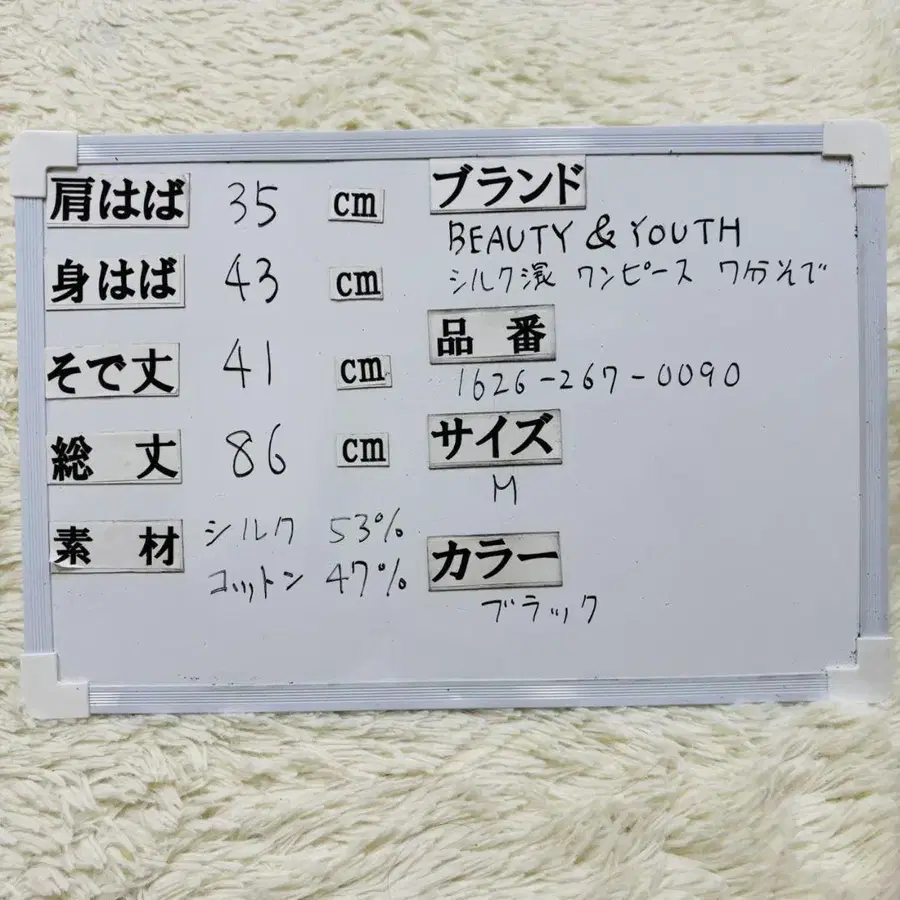 肩はば 35 cm
身はば 43 cm
そで丈 41 cm
総丈 86 cm
素材 シルク 53%
コットン 47%
ブランド
BEAUTY & YOUTH
シルク混 ワンピース 7分そで
品番
1626-267-0090
サイズ
M
カラー
ブラック